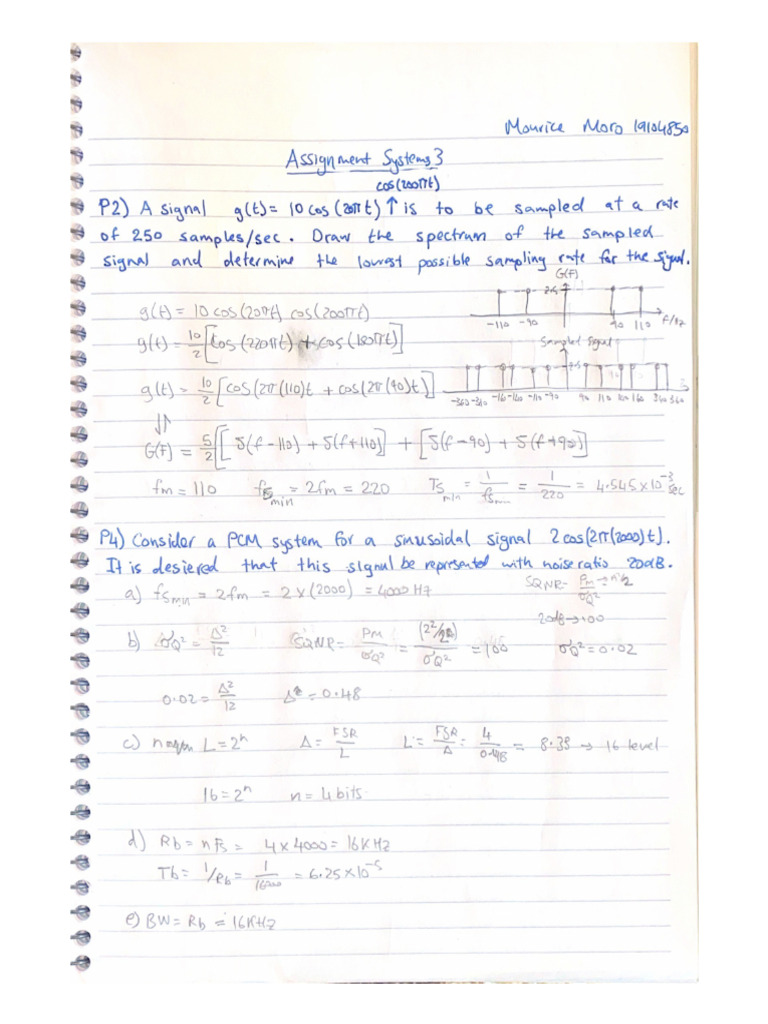 Mourice Moro 19104850
Assignment Systems 3
cos(200πt)
P2) A signal g(t)= 10 cos (20πt) ↑ is to be sampled at a rate
of 250 samples/sec. Draw the spectrum of the sampled
signal and determine the lowest possible sampling rate for the signal.
G(F)
2.5
-110 -90 90 110 F/Hz
g(t) = 10 cos(20πt) cos(200πt)
g(t) = 10/2 [cos(220πt) + cos(180πt)]
Sampled Signal
2.5
-360 -340 -160 -140 -110 -90 90 110 160 340 360
g(t) = 10/2 [cos(2π(110)t + cos(2π(90)t)]
G(F) = 5/2 [δ(f-110) + δ(f+110)] + [δ(f-90) + δ(f+90)]
fm = 110 fs min = 2fm = 220 Ts min = 1/fs min = 1/220 = 4.545 x 10^-3 sec
P4) Consider a PCM system for a sinusoidal signal 2cos(2π(2000)t).
It is desiered that this signal be represented with noise ratio 20dB.
a) fs min = 2fm = 2 x (2000) = 4000 Hz
SQNR = Pm/σQ²
20dB → 100
b) σQ² = Δ²/12 SQNR = Pm/σQ² = (2²/2)/σQ² = 100 σQ² = 0.02
0.02 = Δ²/12 Δ = 0.48
c) L = 2^n Δ = FSR/L L = FSR/Δ = 4/0.48 = 8.35 → 16 level
16 = 2^n n = 4 bits
d) Rb = nFs = 4 x 4000 = 16KHz
Tb = 1/Rb = 1/16000 = 6.25 x 10^-5
e) BW = Rb = 16KHz